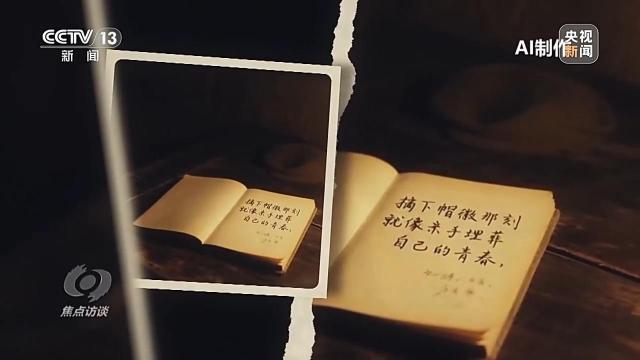 CCTV 13
新闻
AI制作
央视
新闻
摘下帽徽那刻
就像亲手埋葬
自己的青春,
摘下帽徽那刻
就像亲手埋葬
自己的青春,
焦点访谈